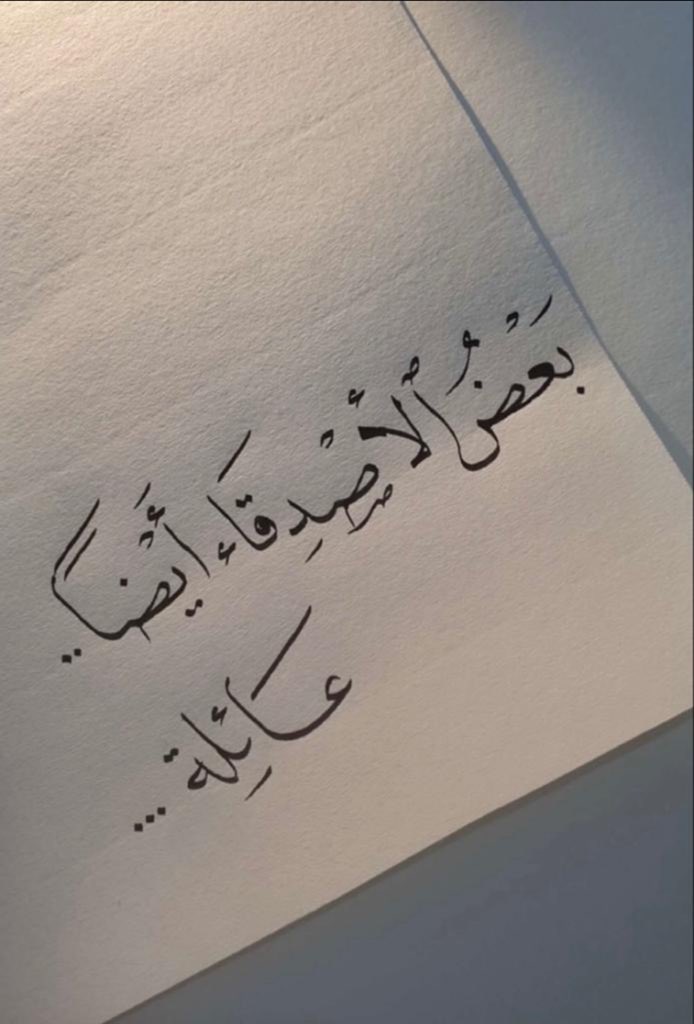 بَعْضُ الْأَصْدِقَاء أَيْضاً ..
عَائِلة ...